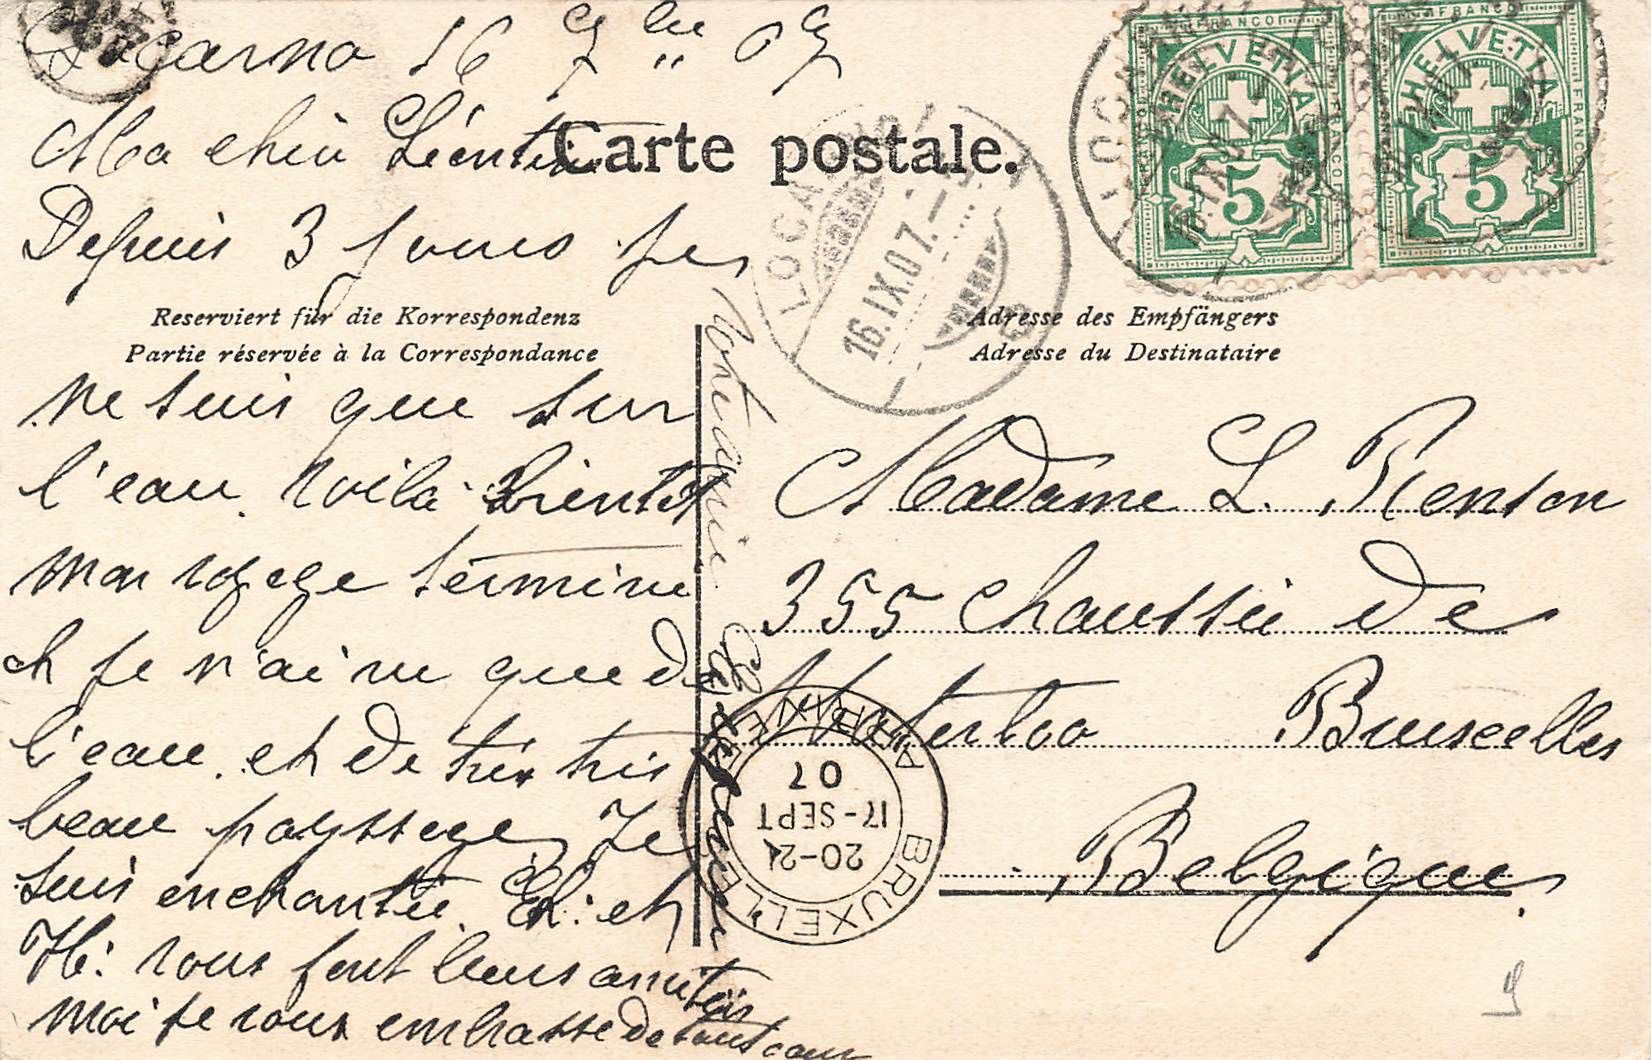 Locarno 16 7bre 07
Ma chère Léontine
Carte postale.
Depuis 3 jours je
Reserviert für die Korrespondenz
Partie réservée à la Correspondance
ne suis que sur
l'eau. Voilà bientôt
mon voyage terminé
et je n'ai vu que de
l'eau. et de très très
beau payssage, Je
suis enchantée. et
vous font leurs amitiés
moi je vous embrasse de tout cœur
Votre amie
HELVETIA
FRANCO
5
HELVETIA
FRANCO
5
LOCARNO
16.IX.07.
LOCARNO
16.IX.07.
Adresse des Empfängers
Adresse du Destinataire
Madame L. Renson
355 Chaussée de
Waterloo Bruxelles
Belgique
BRUXELLES
20-21
17-SEPT
07